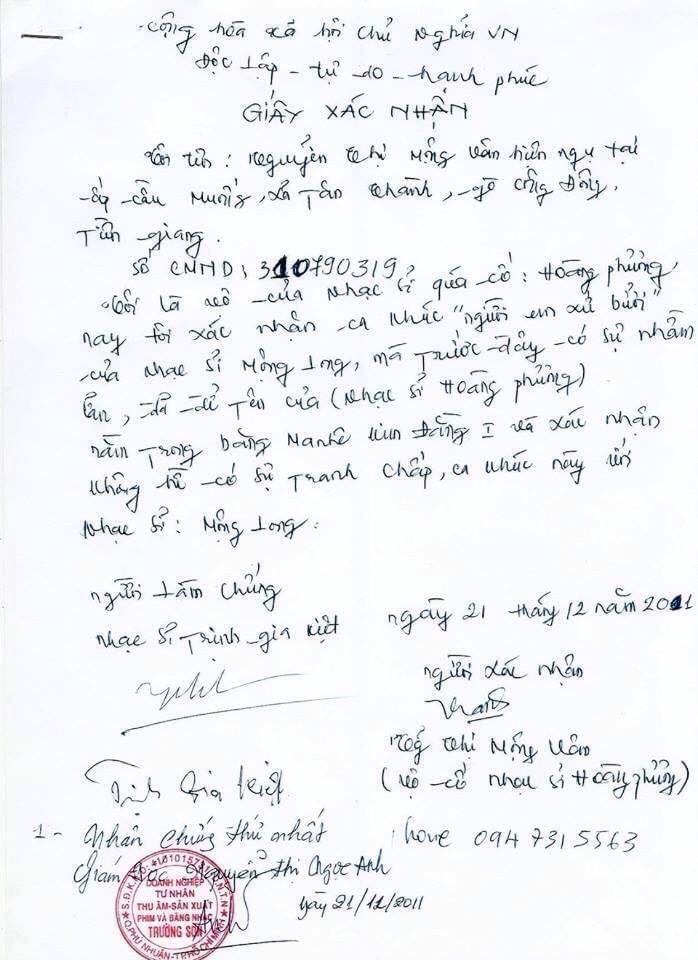 Cộng hòa xã hội chủ nghĩa VN
Độc lập - tự do - hạnh phúc
GIẤY XÁC NHẬN
Tôi tên : Nguyễn thị Mộng Vân hiện ngụ tại
ấp cầu Muống, xã Tân thành, gò công Đông,
Tiền giang.
Số CMND : 310790319
Tôi là vợ của nhạc sĩ quá cố : Hoàng phương,
nay tôi xác nhận ca khúc "người em xứ bưởi"
của nhạc sĩ Mộng Long, mà trước đây có sự nhầm
lẫn, đã để tên của (nhạc sĩ Hoàng phương)
nằm trong băng
I và xác nhận
không hề có sự tranh chấp, ca khúc này với
nhạc sĩ : Mộng Long.
người làm chứng
nhạc sĩ Trịnh gia Kiệt
ngày 21 tháng 12 năm 2011
người xác nhận
Trịnh Gia Kiệt
thị Mộng Vân
(vợ cố nhạc sĩ Hoàng phương)
1 - Nhân chứng thứ nhất
phone 0947315563
Giám đốc Nguyễn Thị Ngọc Anh
Ngày 21/12/2011
DOANH NGHIỆP
TƯ NHÂN
THU ÂM-SẢN XUẤT
PHIM VÀ BĂNG NHẠC
TRƯỜNG SƠN
Q.PHÚ NHUẬN-TP.HỒ CHÍ MINH